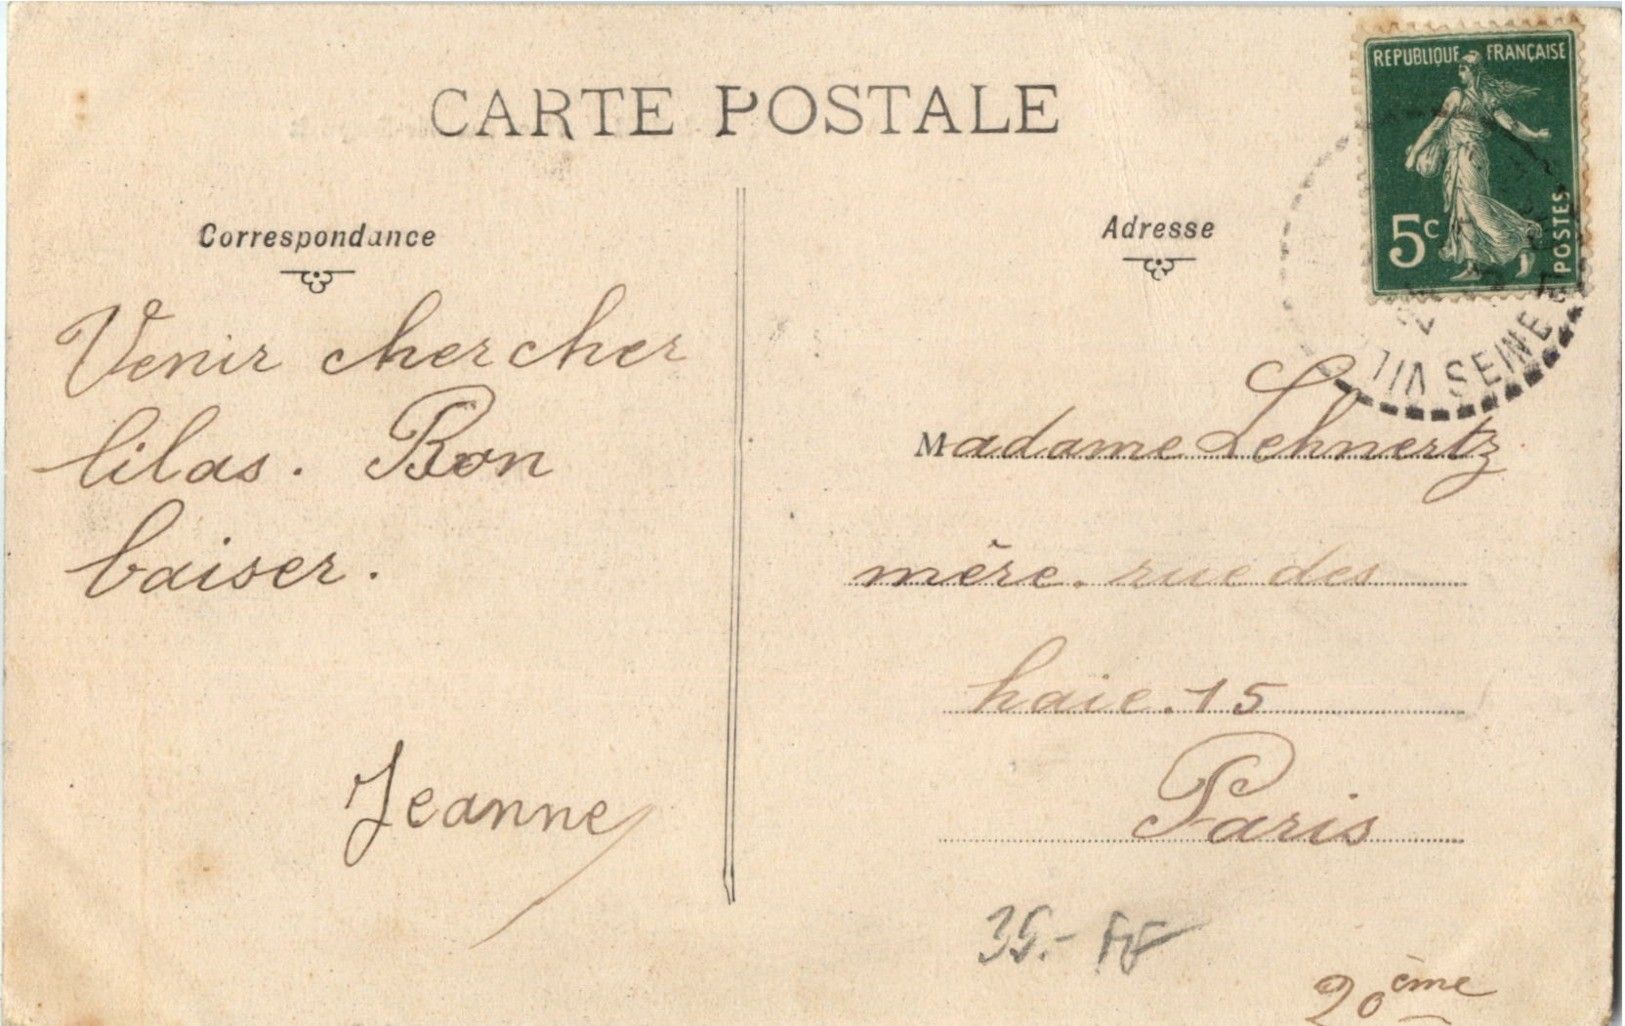 CARTE POSTALE
REPUBLIQUE FRANÇAISE
5c
POSTES
SEINE
Correspondance
Venir chercher
lilas. Bon
baiser.
Jeanne
Adresse
Madame Lehnertz
mêre. rue des
haie. 15
Paris
35.- FF
20ème